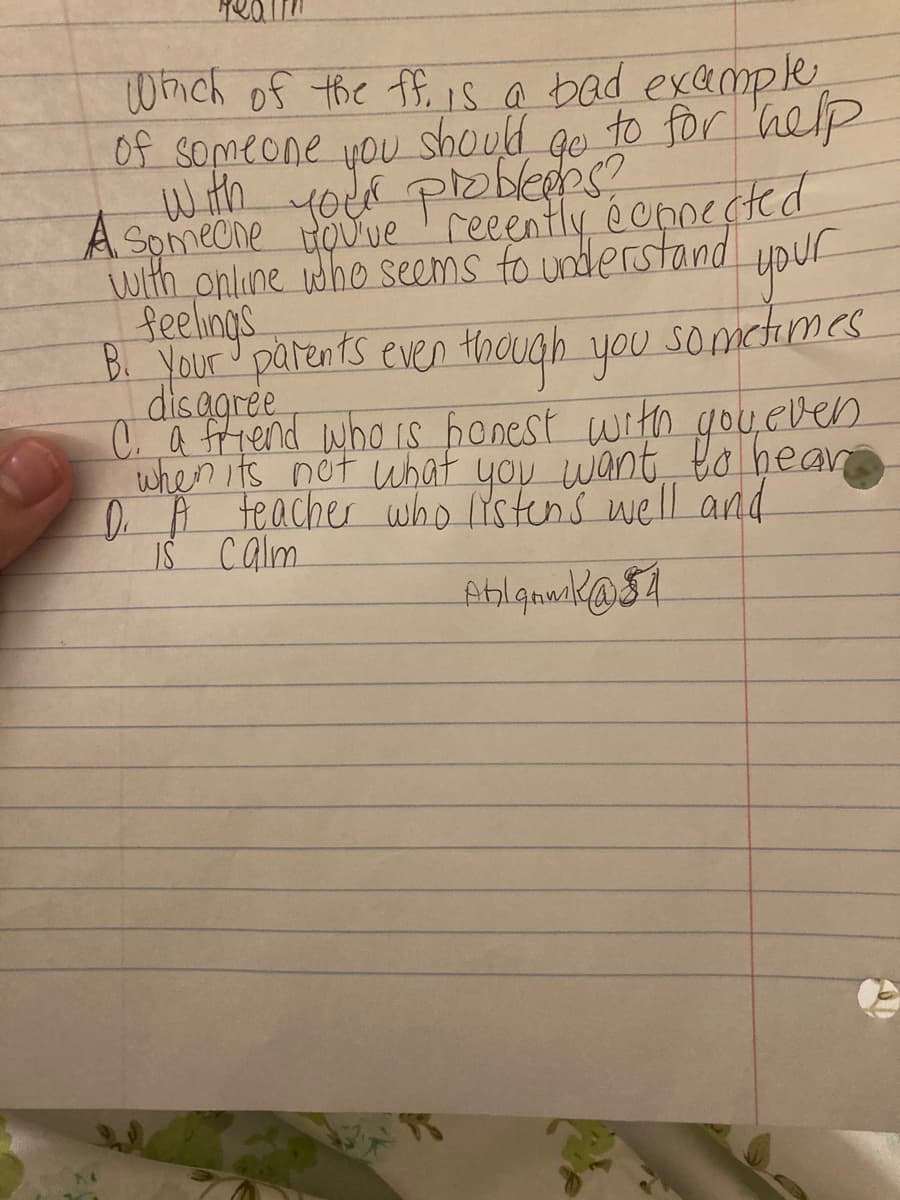 Health
Which of the ff. is a bad example
of someone you should go to for help
with your problems?
A. Someone you've recently connected
with online who seems to understand your
feelings
B. Your parents even though you sometimes
disagree
C. a friend who is honest with you even
when its not what you want to hear
D. A teacher who listens well and
is calm